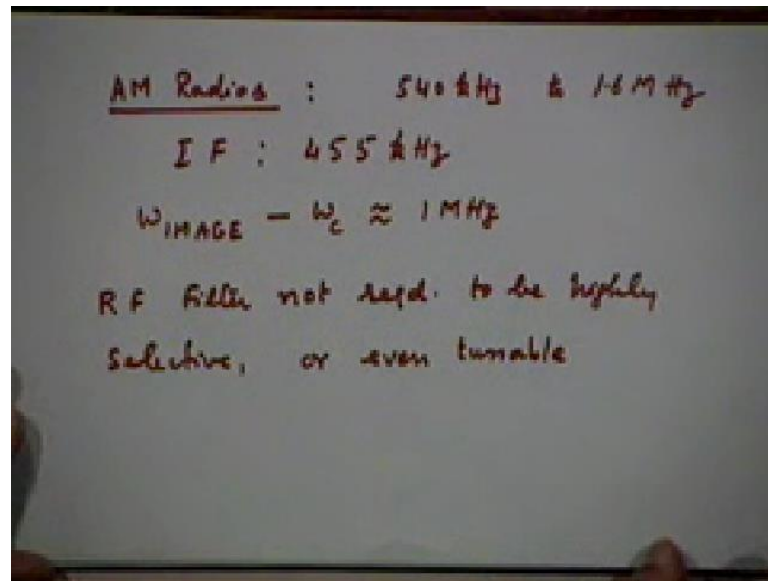 AM Radios : 540 kHz to 1.6 MHz
IF : 455 kHz
ω_IMAGE − ω_c ≈ 1 MHz
RF Filter not reqd. to be highly
selective, or even tunable